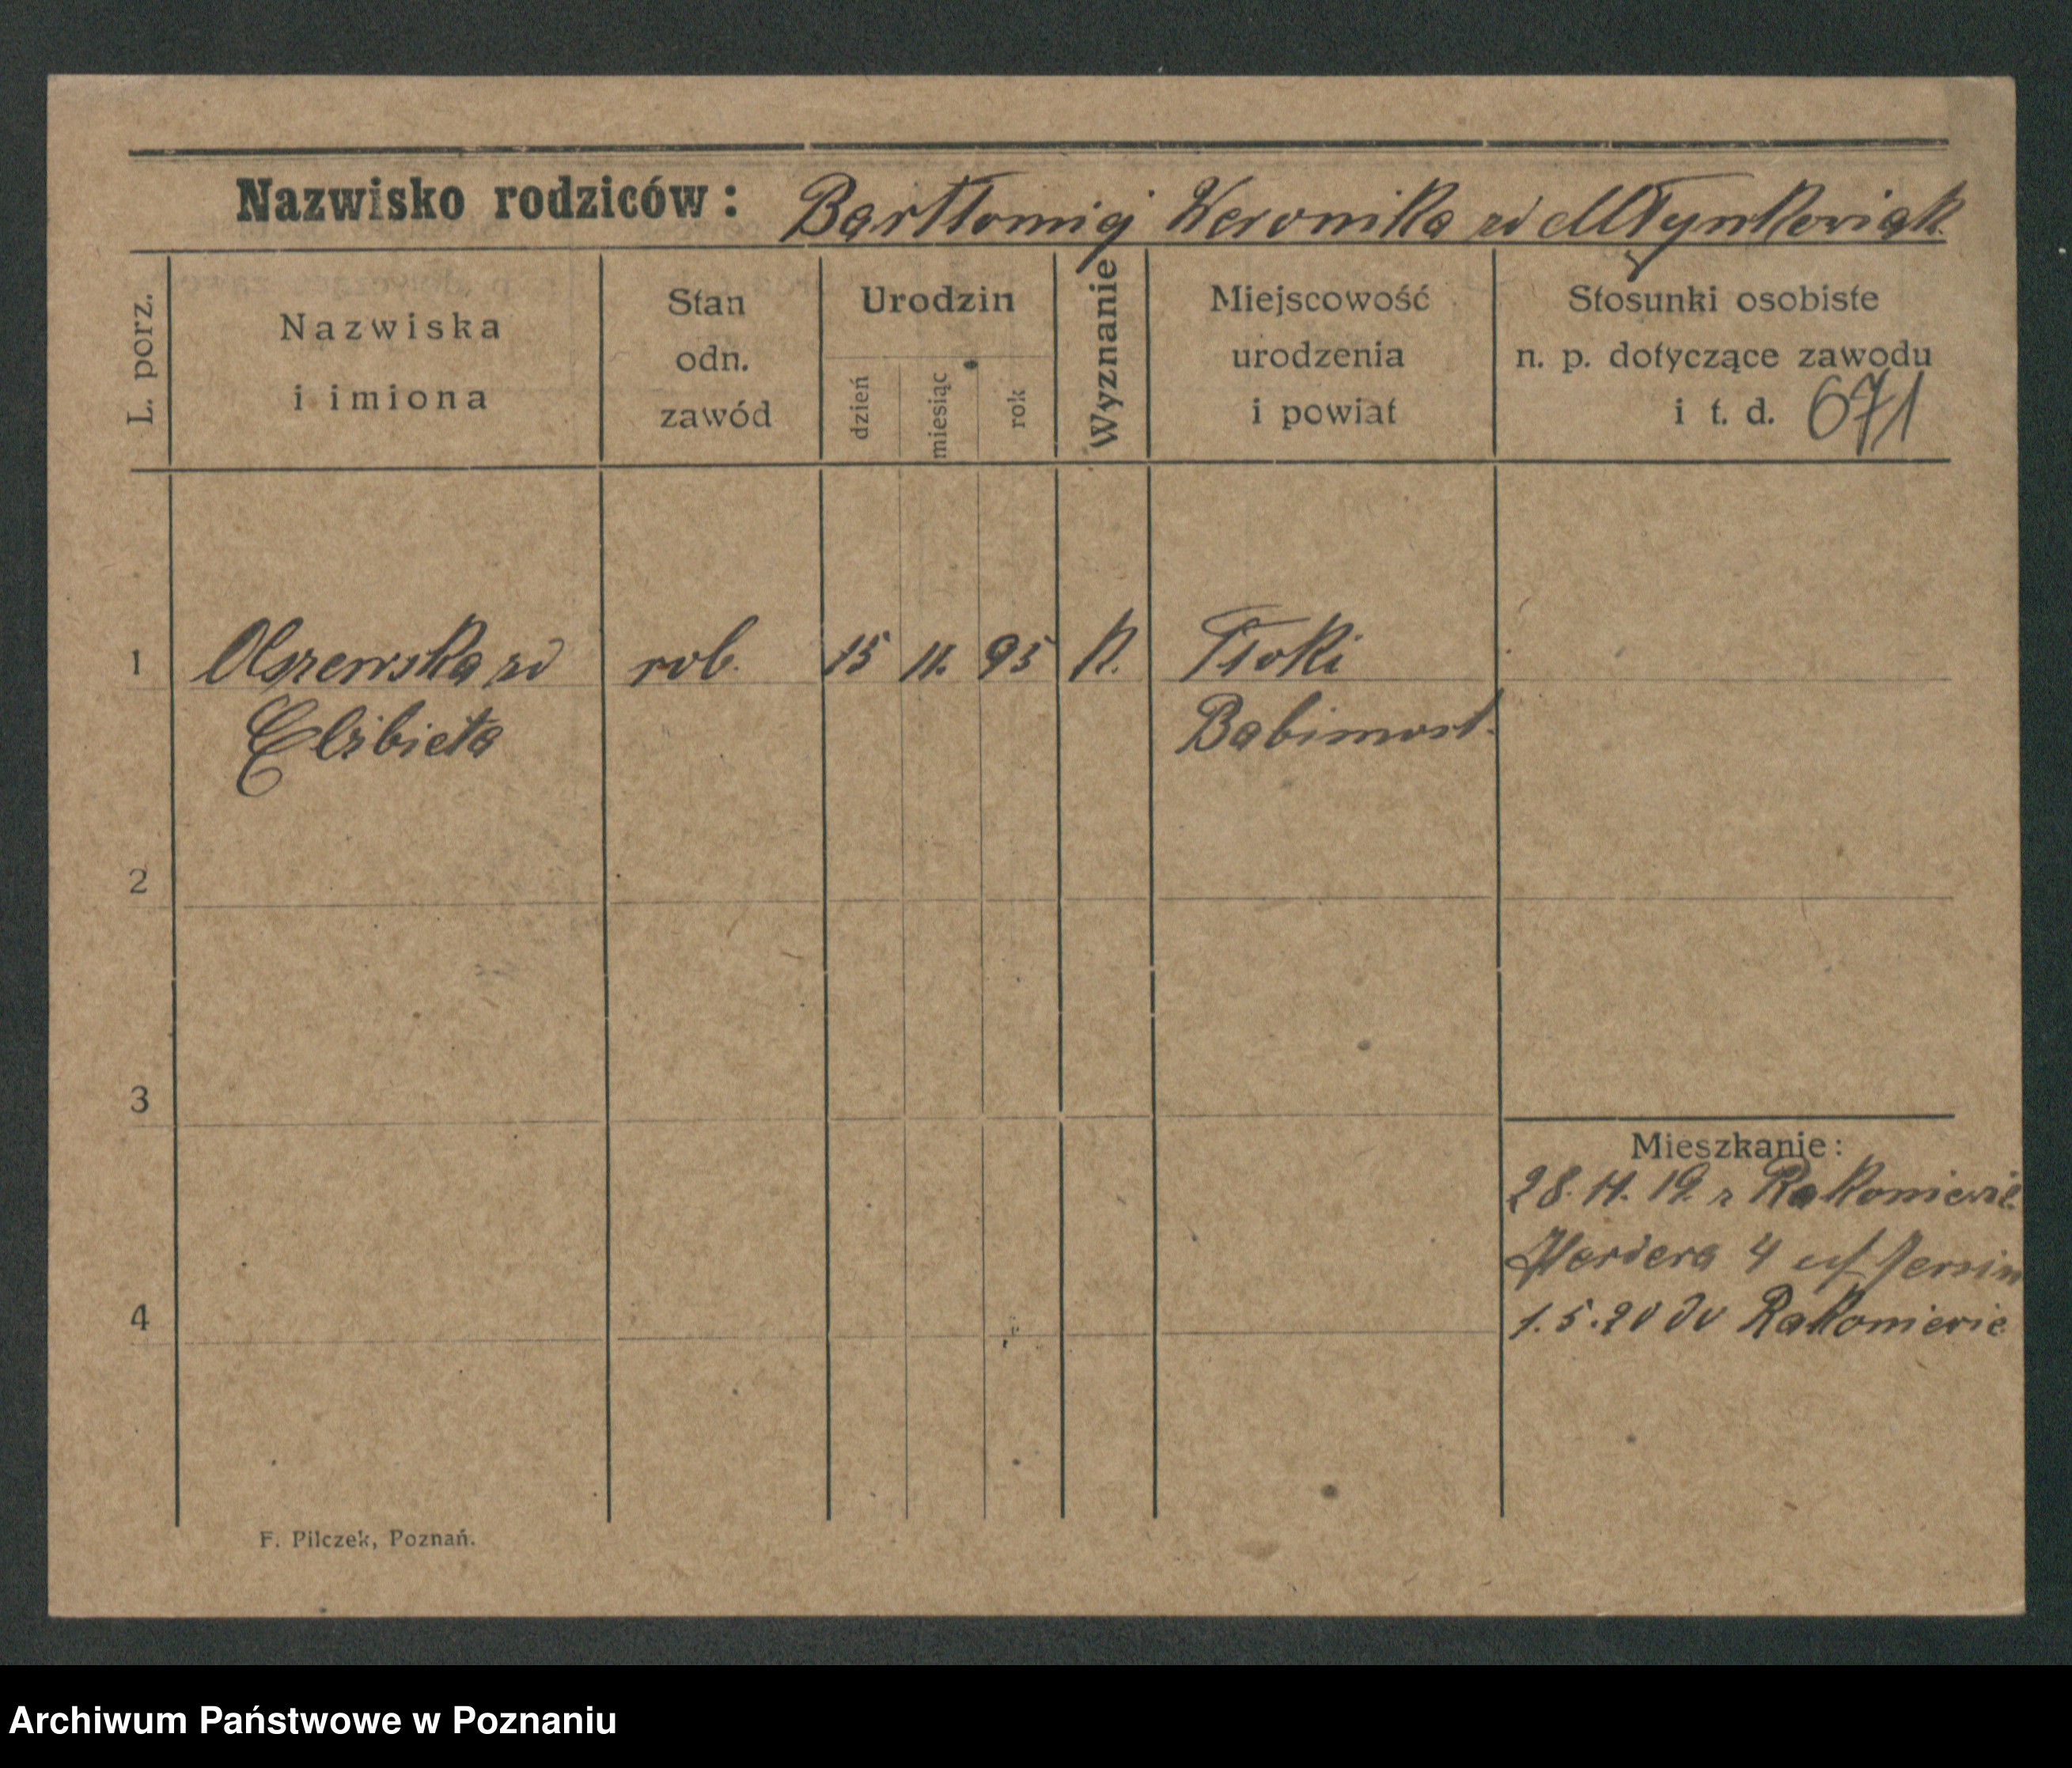 Nazwisko rodziców: Bartłomiej Weronika zd Młynkowiak
L. porz.
Nazwiska
i imiona
Stan
odn.
zawód
Urodzin
dzień
miesiąc
rok
Wyznanie
Miejscowość
urodzenia
i powiat
Stosunki osobiste
n. p. dotyczące zawodu
i t. d. 671
1 Olszewska zd rob. 15 11. 95 K. Tłoki
Elżbieta Babimost.
2
3
Mieszkanie:
28. 11. 19. z Rakoniewic
Herdera 4
4
1.5.20 do Rakoniewic
F. Pilczek, Poznań.
Archiwum Państwowe w Poznaniu